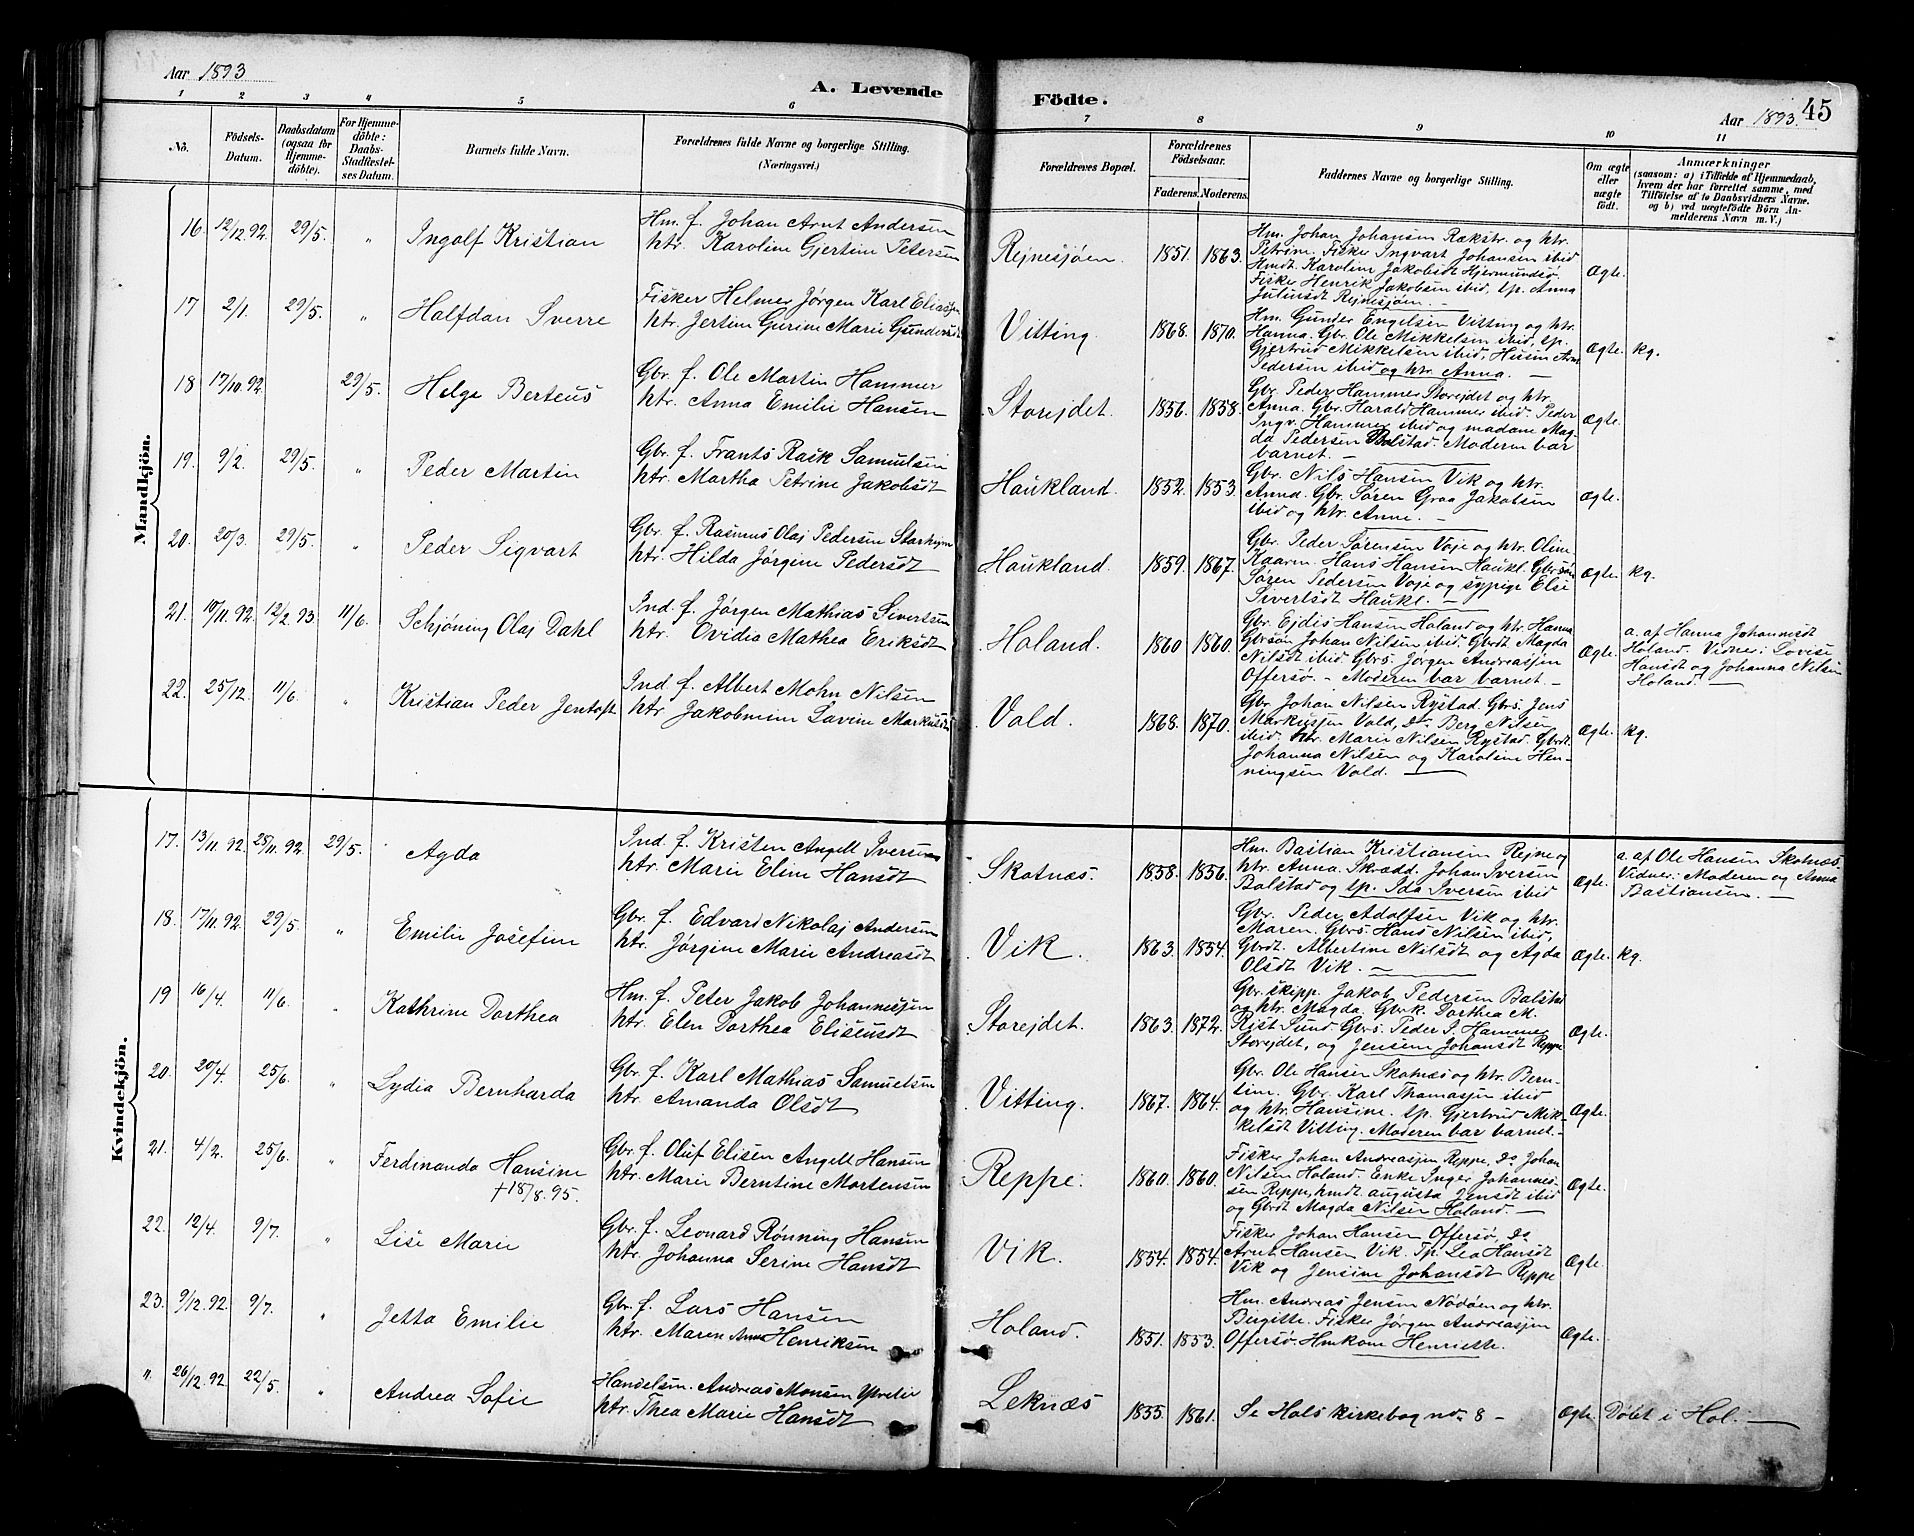 Aar 1893
A. Levende
Fødte.
Aar 1893. 45
1 2 3 4 5 6 7 8 9 10 11
No.
Födsels-Datum.
Daabsdatum (ogsaa for Hjemme-döbte).
For Hjemme-döbte: Daabs-Stadfæstel-ses Datum.
Barnets fulde Navn.
Forældrenes fulde Navne og borgerlige Stilling.
(Næringsvei.)
Forældrenes Bopæl.
Forældrenes Födselsaar.
Faderens. Moderens.
Faddernes Navne og borgerlige Stilling.
Om ægte eller uægte födt.
Anmærkninger
(saasom: a) i Tilfælde af Hjemmedaab,
hvem der har forrettet samme, med
Tilföielse af to Daabsvidners Navne,
og b) ved uægtefødte Börn An-
melderens Navn m. V.)
Mandkjön.
16. 12/12.92. 29/5. " Ingolf Kristian
Hm. f. Johan Arnt Andersen
htr. Karoline Gjertine Petersen
Rejnesjøen. 1851. 1863.
Hm. Johan Johansen Rækstr. og htr.
Petrine. Fisker Ingvart Johansen ibid
Hmdt. Karoline Jakobsdt Hjermundsø.
Fisker Henrik Jakobsen ibid, tp. Anna
Juliusdt Rejnesjøen. —
Ægte.
17 2/1. 29/5. " Halfdan Sverre
Fisker Helmer Jørgen Karl Eliassen
htr. Jertine Gurine Marie Gundersdt
Vitting. 1868. 1870.
Hm. Gunder Engelsen Vitting og htr.
Hanna. Gbr. Ole Mikkelsen ibid, tp.
Gjertrud Mikkelsen ibid,
Pedersen ibid og htr. Anna. —
Ægte. kg.
18 17/10.92. 29/5. Helge Berteus
Gbr. f. Ole Martin Hammer
htr. Anna Emilie Hansen
Storejdet. 1856. 1858.
Gbr. Peder Hammer Storejdet og htr.
Anna. Gbr. Harald Hammer ibid. Peder
Ingv. Hammer ibid og madame Mag-
da Pedersen Balstad. Moderen bar
barnet. —
Ægte.
19. 9/2. 29/5. " Peder Martin
Gbr. f. Frants Rask Samulsen
htr. Martha Petrine Jakobsdt
Haukland. 1852. 1853.
Gbr. Nils Hansen Vik og htr.
Anna. Gbr. Søren Graa Jakobsen
ibid og htr. Anne. —
Ægte.
20. 20/3. 29/5. " Peder Sigvart
Gbr. f. Rasmus Olaj Pedersen
htr. Hilda Jørgine Pedersdt
Haukland. 1859. 1867.
Gbr. Peder Sørensen Voje og htr. Oline
Kaarm. Hans Hansen Haukl. Gbrsøn
Søren Pedersen Voje og sypige Elsi
Sivertsdt Haukl. —
Ægte. kg.
21. 10/11.92. 12/2.93. 11/6. Schjøning Olaj Dahl
Ind. f. Jørgen Mathias Sivertsen
htr. Ovidia Mathea Eriksdt
Holand. 1860 1860.
Gbr. Ejdis Hansen Holand og htr. Hanna
Gbrsøn Johan Nilsen ibid. Gbrdt. Magda
Nilsdt ibid. Gbrs. Jørgen Andreassen
Offersø. — Moderen bar barnet —
Ægte.
a. af Hanna Johannesdt
Holand. Vidner: Lovise
Hansdt og Johanna Nilsen
Holand. —
22. 25/12. 11/6. " Kristian Peder Jentoft
Ind. f. Albert Mohn Nilsen
htr. Jakobmine Lavine Markusdt
Vold. 1868. 1870.
Gbr. Johan Nilsen Rystad. Gbrs. Jens
Markussen Vold, Do Berg Nilsen
ibid. htr. Marie Nilsen Rystad. Gbrdt.
Johanna Nilsen og Karoline Hen-
ningsen Vold. —
Ægte. kg.
Kvindekjön.
17. 13/11.92. 28/11.92. 29/5. Agda
Ind. f. Kristen Angell Iversen
htr. Marie Eline Hansdt
Skotnæs. 1858. 1856.
Hm. Bastian Kristiansen Rejne og
htr. Anna. Skrædd. Johan Iversen
Balstad og tp. Ida Iversen ibid
Ægte.
a. af Ole Hansen Skotnæs
Vidner: Moderen og Anna
Bastiansen. —
18. 17/11.92. 29/5. " Emilie Josefine
Gbr. f. Edvard Nikolaj Andersen
htr. Jørgine Marie Andreasdt
Vik. 1863. 1854.
Gbr. Peder Adolfsen Vik og htr.
Maren. Gbrs. Hans Nilsen ibid,
Gbrdt. Albertine Nilsdt og Agda
Olsdt Vik. —
Ægte. kg.
19 16/4. 11/6. " Kathrine Dorthea
Hm. f. Peter Jakob Johannessen
htr. Elen Dorthea Eliseusdt
Storejdet. 1863. 1872.
Gbr. skipp. Jakob Pedersen Balstad
og htr. Magda. Gbrk. Dorthea M.
Rist Sund. Gbrs. Peder I. Hammer
Storejdet, og Jensine Johansdt Reppe
Ægte.
20. 20/4. 25/6. " Lydia Bernharda
Gbr. f. Karl Mathias Samuelsen
htr. Amanda Olsdt
Vitting. 1867. 1864.
Gbr. Ole Hansen Skotnæs og htr. Bern-
tine. Gbr. Karl Thomassen ibid
og htr. Hansine. tp. Gjertrud Mik-
kelsdt Vitting. Moderen bar barnet. —
Ægte.
21. 4/2. 25/6. " Ferdinanda Hansine
† 18/8.95.
Gbr. f. Oluf Elisen Angell Hansen
htr. Marie Berntine Mortensen
Reppe. 1860. 1860.
Fisker Johan Andreassen Reppe, Do Johan
Nilsen Holand. Enke Inger Johannes-
sen Reppe, hmdt. augusta Jensdt ibid
og Gbrdt Magda Nilsen Holand. —
Ægte.
22. 12/4. 9/7. " Lise Marie
Gbr. f. Leonard Rønning Hansen
htr. Johanna Serine Hansdt
Vik. 1854. 1854.
Fisker Johan Hansen Offersø, Do
Arnt Hansen Vik. Tp. Lea Hansdt
Vik og Jensine Johansdt Reppe
Ægte.
23. 9/12.92. 9/7. " Jetta Emilie
Gbr. f. Lars Hansen
htr. Maren Anna Henriksen
Holand. 1851. 1853.
Hm. Andreas Jensen Nødøen og htr.
Birgitte. Fisker Jørgen Andreassen
Offersø. Hmkone Henriette.
Ægte.
". 26/12.92 22/5. " Andrea Sofie
Handelsm. Andreas Monsen
htr. Thea Marie Hansdt
Leknæs 1855. 1861.
Se Hols kirkebog no. 8 —
Ægte. Døbt i Hol. —